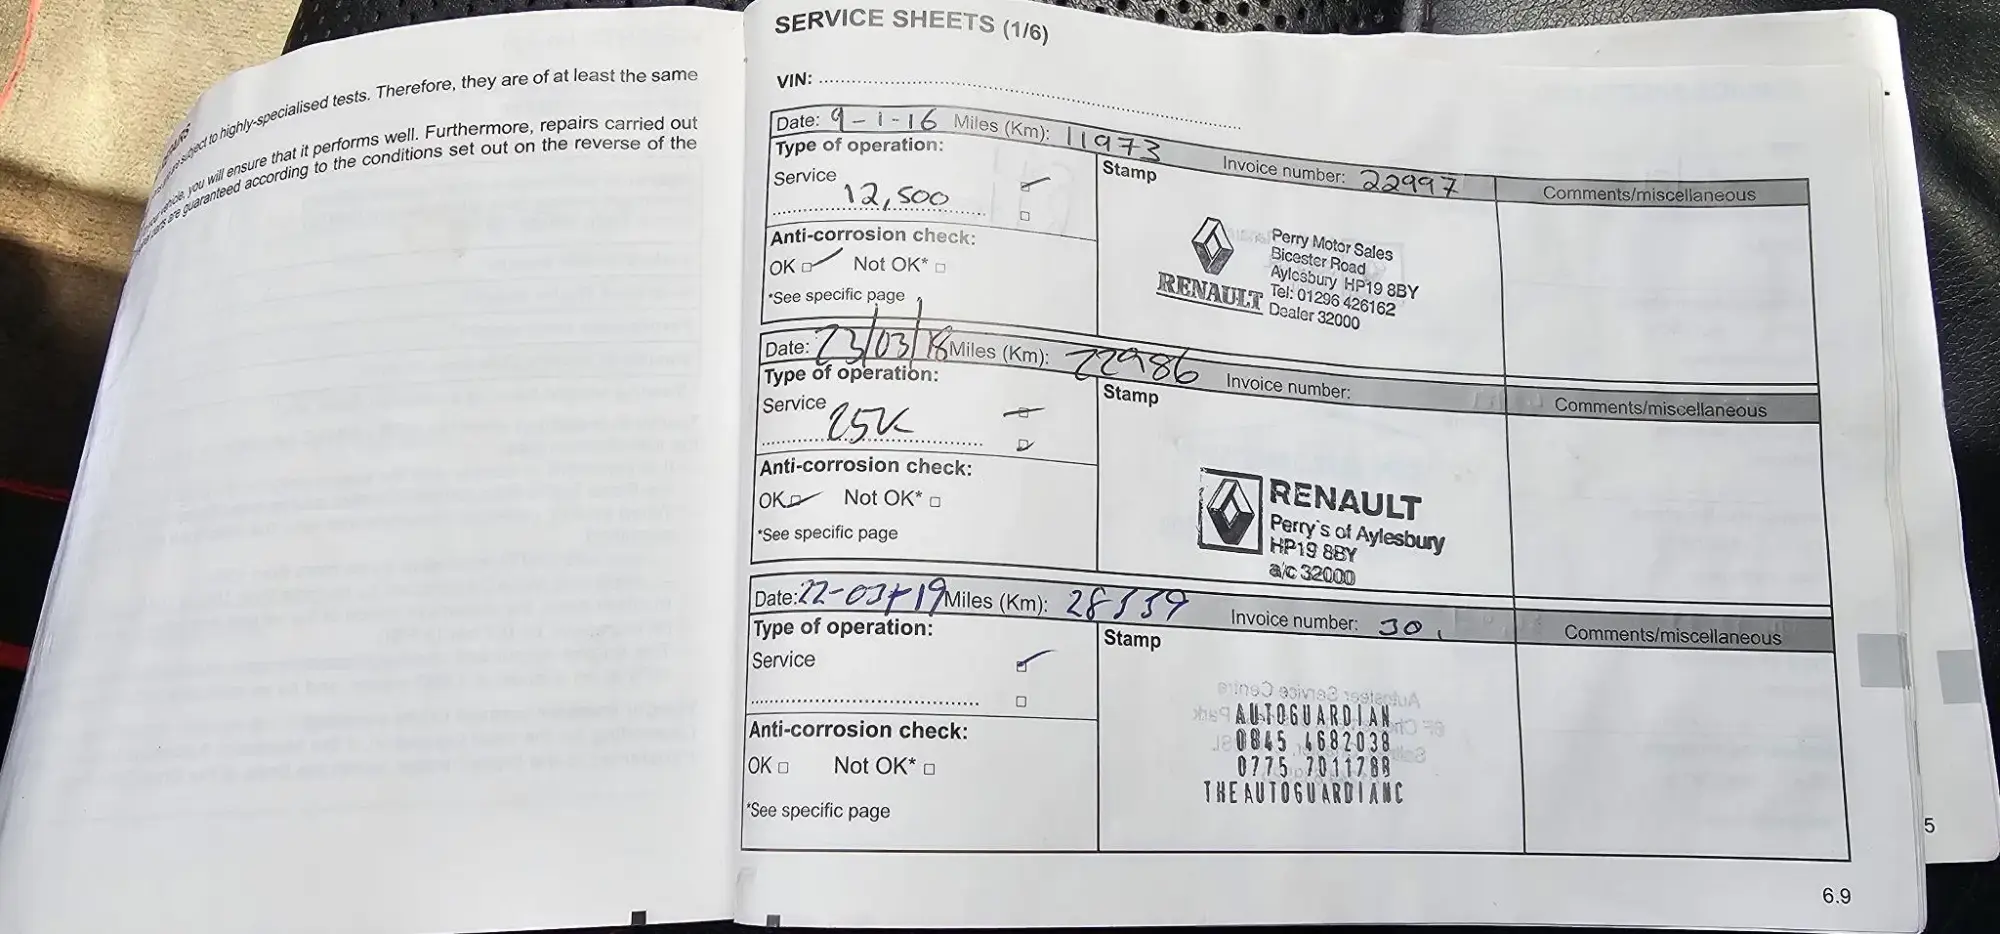 subject to highly-specialised tests. Therefore, they are of at least the same
vehicle, you will ensure that it performs well. Furthermore, repairs carried out
parts are guaranteed according to the conditions set out on the reverse of the
SERVICE SHEETS (1/6)
VIN:
Date: 9-1-16 Miles (Km): 11973 Invoice number: 22997 Comments/miscellaneous
Type of operation:
Service
12,500
Anti-corrosion check:
OK Not OK*
*See specific page
Stamp
RENAULT
Perry Motor Sales
Bicester Road
Aylesbury HP19 8BY
Tel: 01296 426162
Dealer 32000
Date: 23/03/18 Miles (Km): 22986 Invoice number: Comments/miscellaneous
Type of operation:
Service
25K
Anti-corrosion check:
OK Not OK*
*See specific page
Stamp
RENAULT
Perry's of Aylesbury
HP19 8BY
a/c 32000
Date: 22-03-19 Miles (Km): 28339 Invoice number: 30 Comments/miscellaneous
Type of operation:
Service
Anti-corrosion check:
OK Not OK*
*See specific page
Stamp
AUTOGUARDIAN
0845 4682038
0775 7011788
THEAUTOGUARDIANC
5
6.9